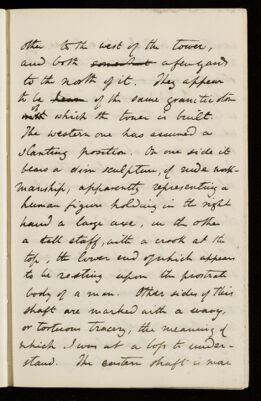 other to the west of the tower,
and both somewhat a few yards
to the north of it. They appear
to be of the same granitic stone
of which the tower is built.
The western one has assumed a
slanting position. On one side it
bears a dim sculpture, of rude work-
manship, apparently representing a
human figure holding in the right
hand a large axe, in the other
a tall staff, with a crook at the
top, the lower end of which appears
to be resting upon the prostrate
body of a man. Other sides of this
shaft are marked with a wavy,
or tortuous tracery, the meaning of
which I was at a loss to under-
stand. The eastern shaft is more